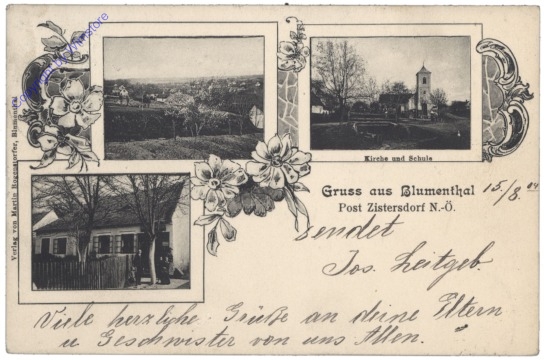 Kirche und Schule
Gruss aus Blumenthal
Post Zistersdorf N.-Ö.
15./8. 04
sendet
Jos. Leitgeb.
Viele herzliche Grüße an deine Eltern
u Geschwister von uns Allen.
Verlag von Martin Blumenthal